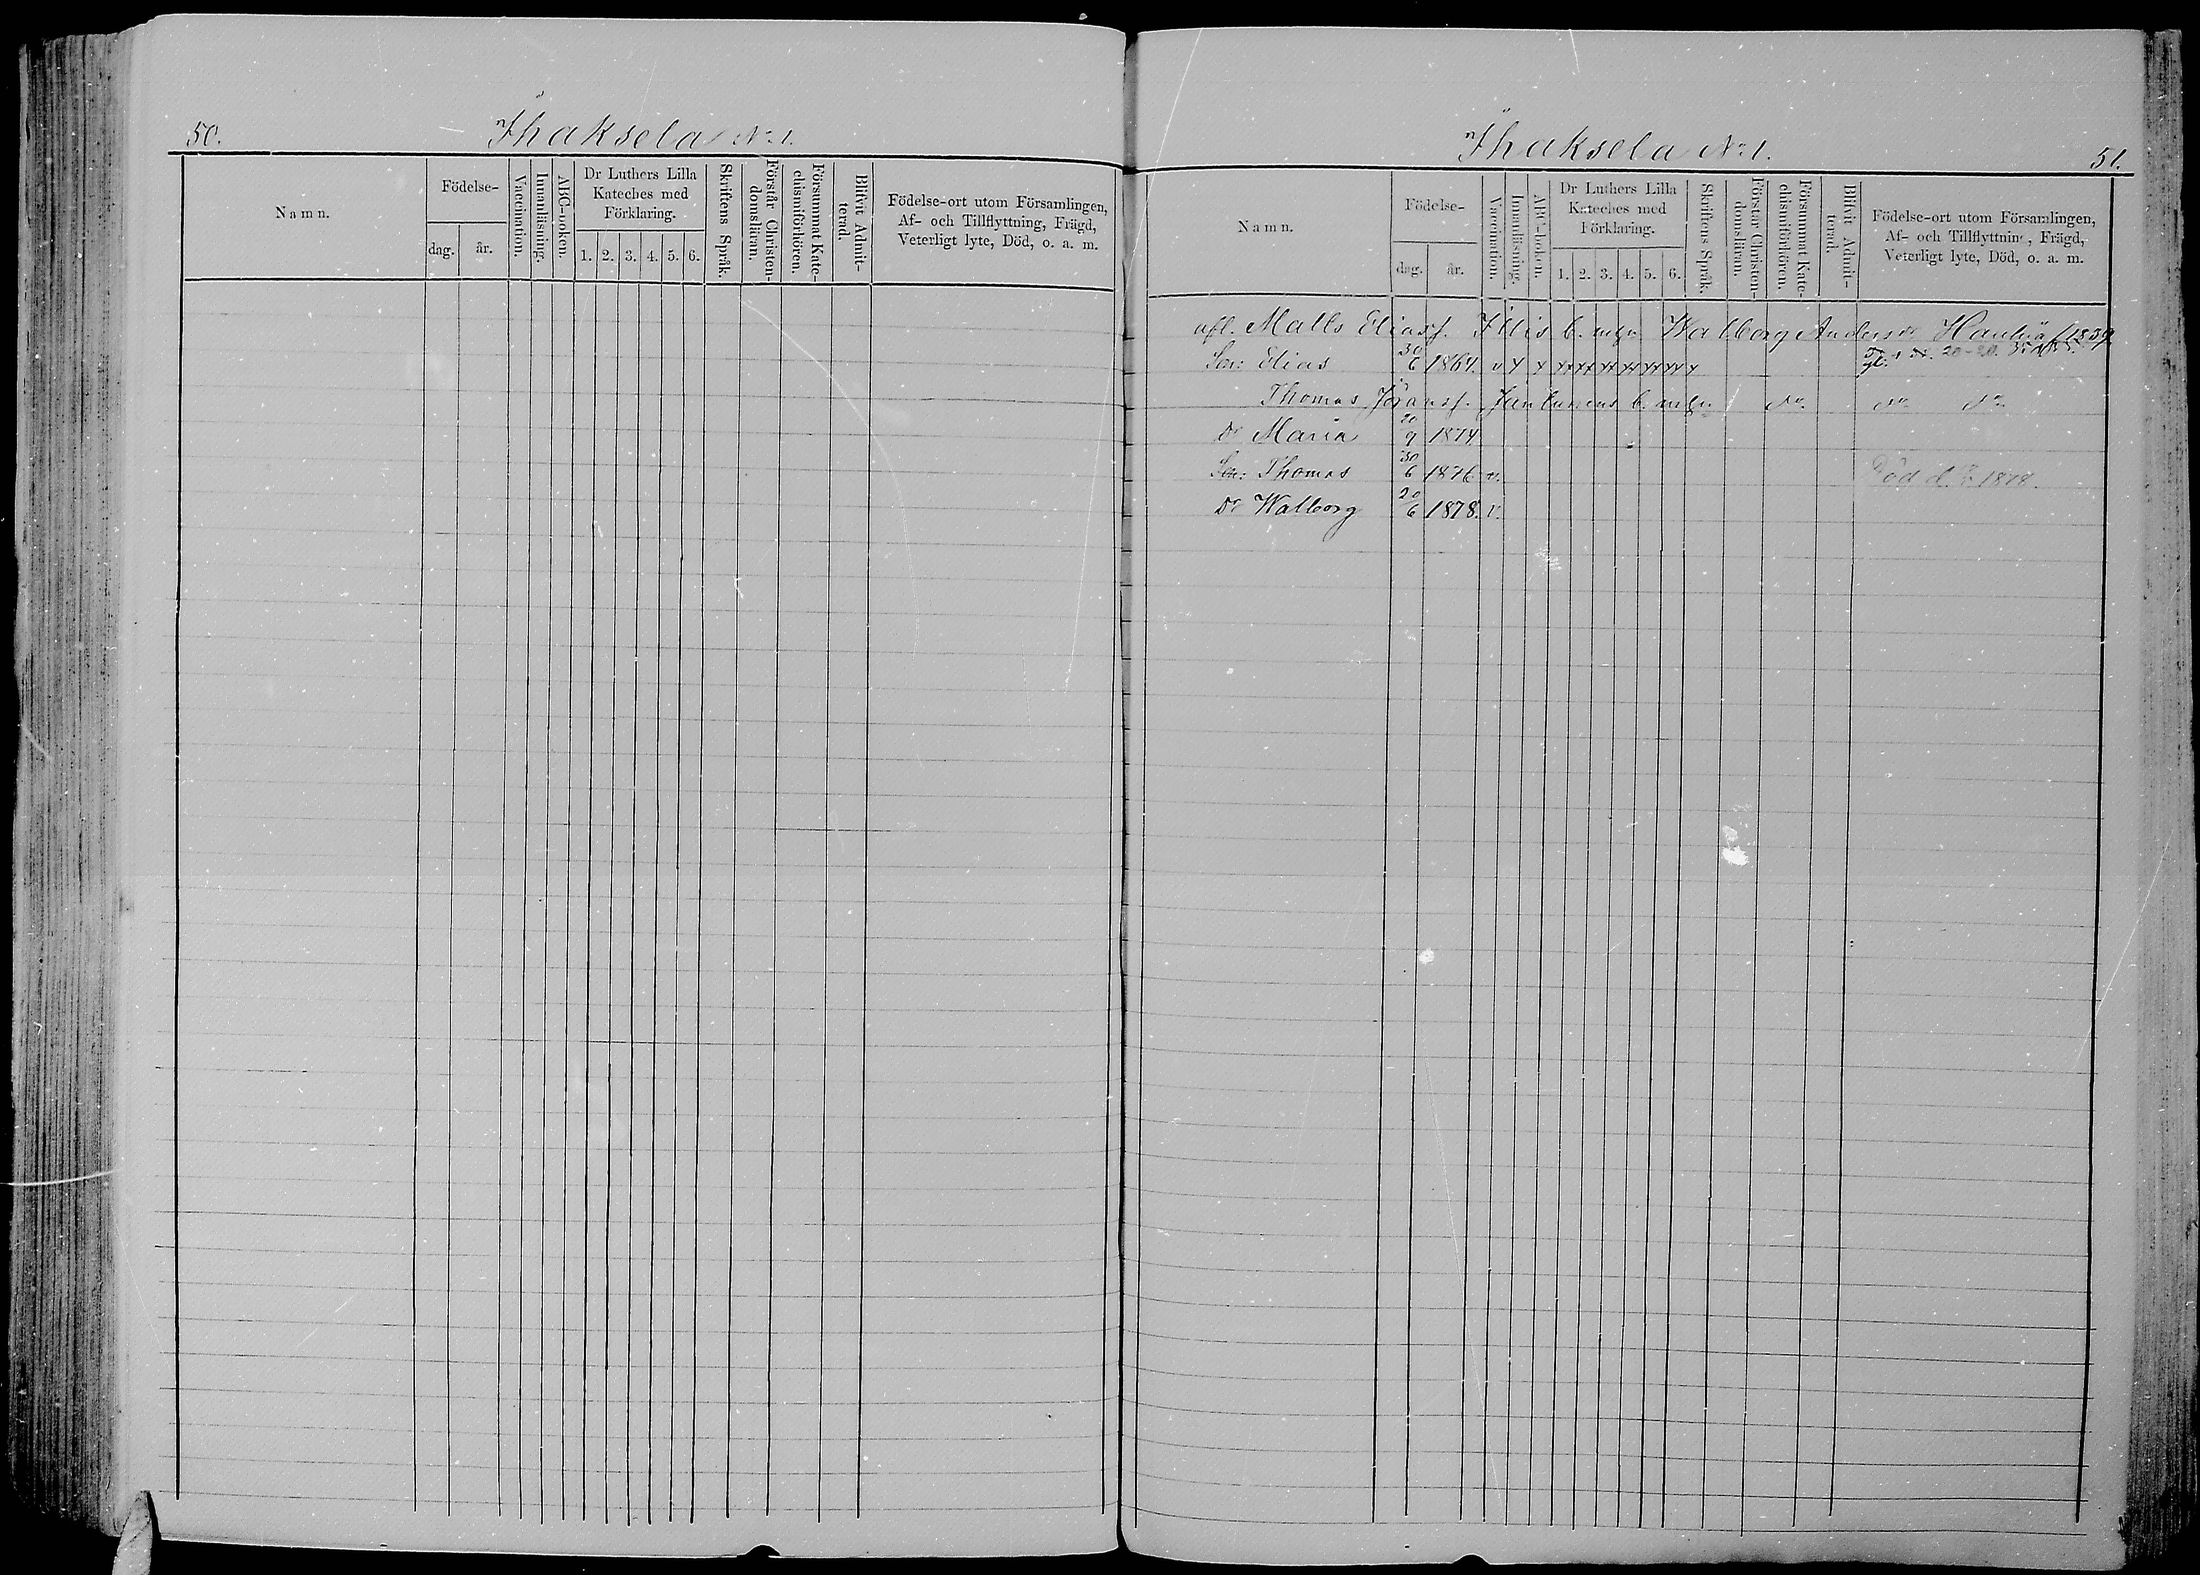 50.
Ihaksela No 1.
Namn.
Födelse-
dag.
år.
Vaccination.
Innanläsning.
ABC-boken.
Dr Luthers Lilla
Kateches med
Förklaring.
1. 2. 3. 4. 5. 6.
Skriftens Språk.
Förstår Christen-
domsläran.
Försummat Kate-
chismiförhören.
Blifvit Admit-
terad.
Födelse-ort utom Församlingen,
Af- och Tillflyttning, Frägd,
Veterligt lyte, Död, o. a. m.
Ihaksela No 1.
51.
Namn.
Födelse-
dag.
år.
Vaccination.
Innanläsning.
ABC-boken.
Dr Luthers Lilla
Kateches med
Förklaring.
1. 2. 3. 4. 5. 6.
Skriftens Språk.
Förstår Christen-
domsläran.
Försummat Kate-
chismiförhören.
Blifvit Admit-
terad.
Födelse-ort utom Församlingen,
Af- och Tillflyttning, Frägd,
Veterligt lyte, Död, o. a. m.
afl. Matts Eliass. Walborg Andersdr 1839
Son: Elias 30/6 1864. v
Thomas Jöranss. do do do
Dr Maria 20/9 1874
Son: Thomas 30/6 1876 v. Död d. 1878.
Dr Walborg 20/6 1878. v.